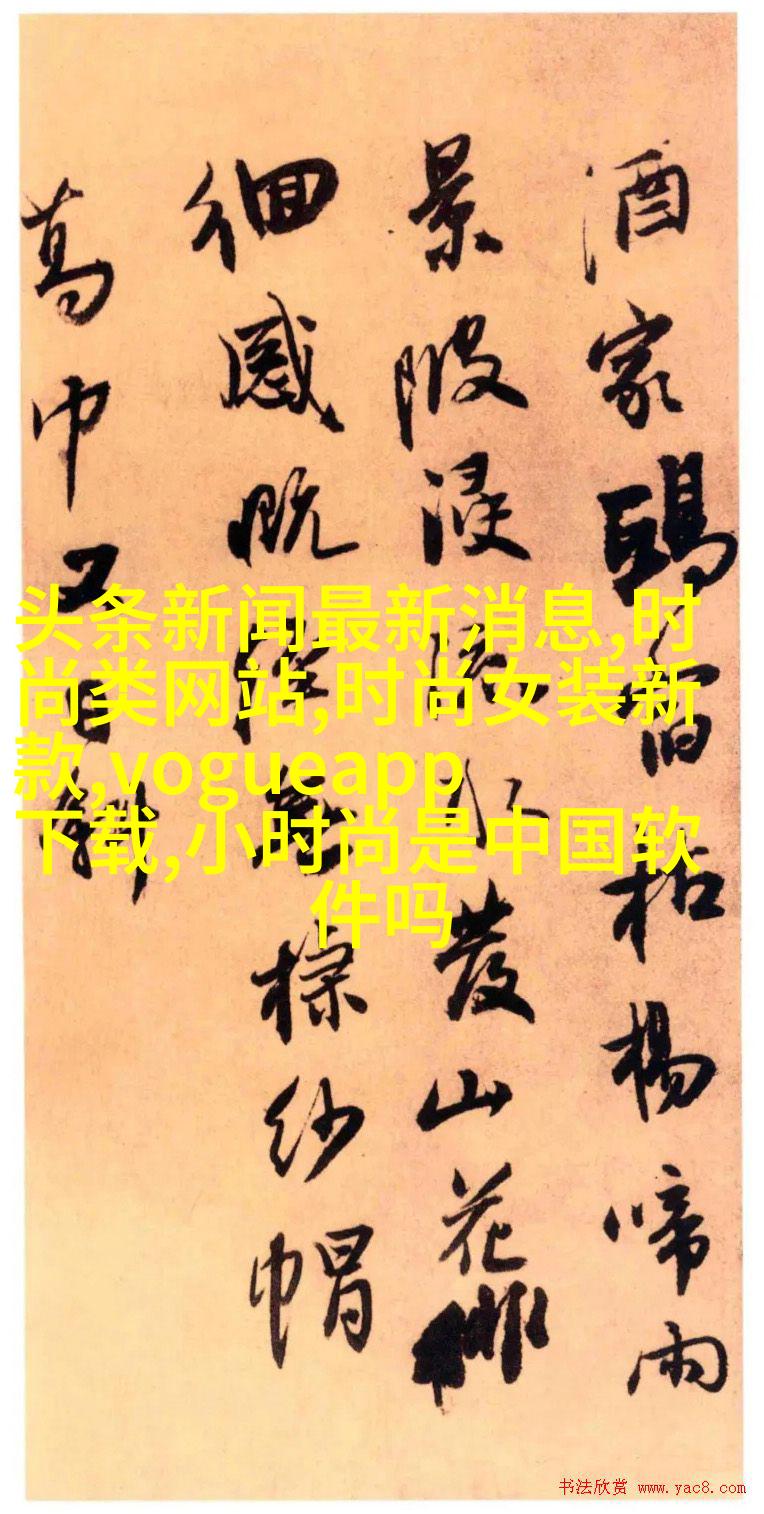 酒家宿柘楊啼雨
景陂浸水發山花徘
徊感慨棕紗帽
葛巾又日斜
头条新闻最新消息,时
尚类网站,时尚女装新
款,vogueapp
下载,小时尚是中国软
件吗
书法欣赏 www.yac8.com